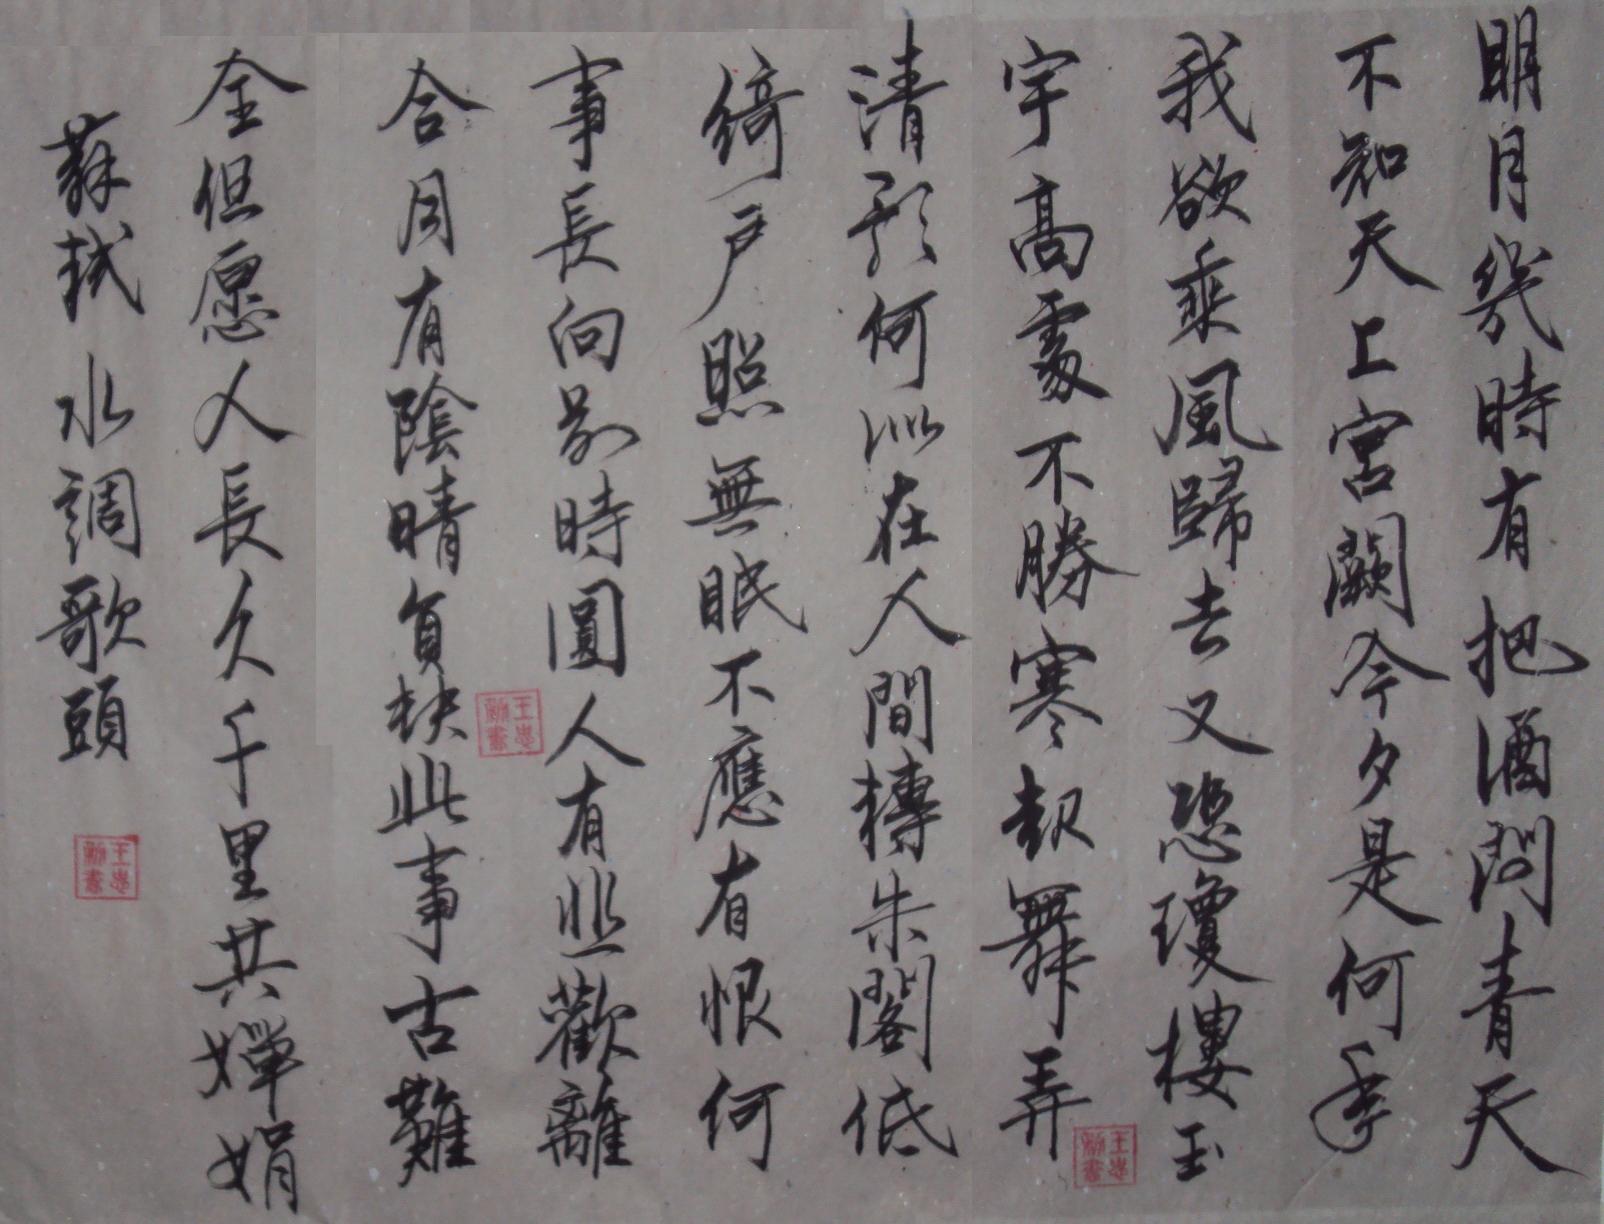 明月幾時有把酒問青天
不知天上宮闕今夕是何年
我欲乘風歸去又恐瓊樓玉
宇高處不勝寒起舞弄
清影何似在人間轉朱閣低
綺戶照無眠不應有恨何
事長向別時圓人有悲歡離
合月有陰晴負缺此事古難
全但愿人長久千里共嬋娟
蘇軾 水調歌頭